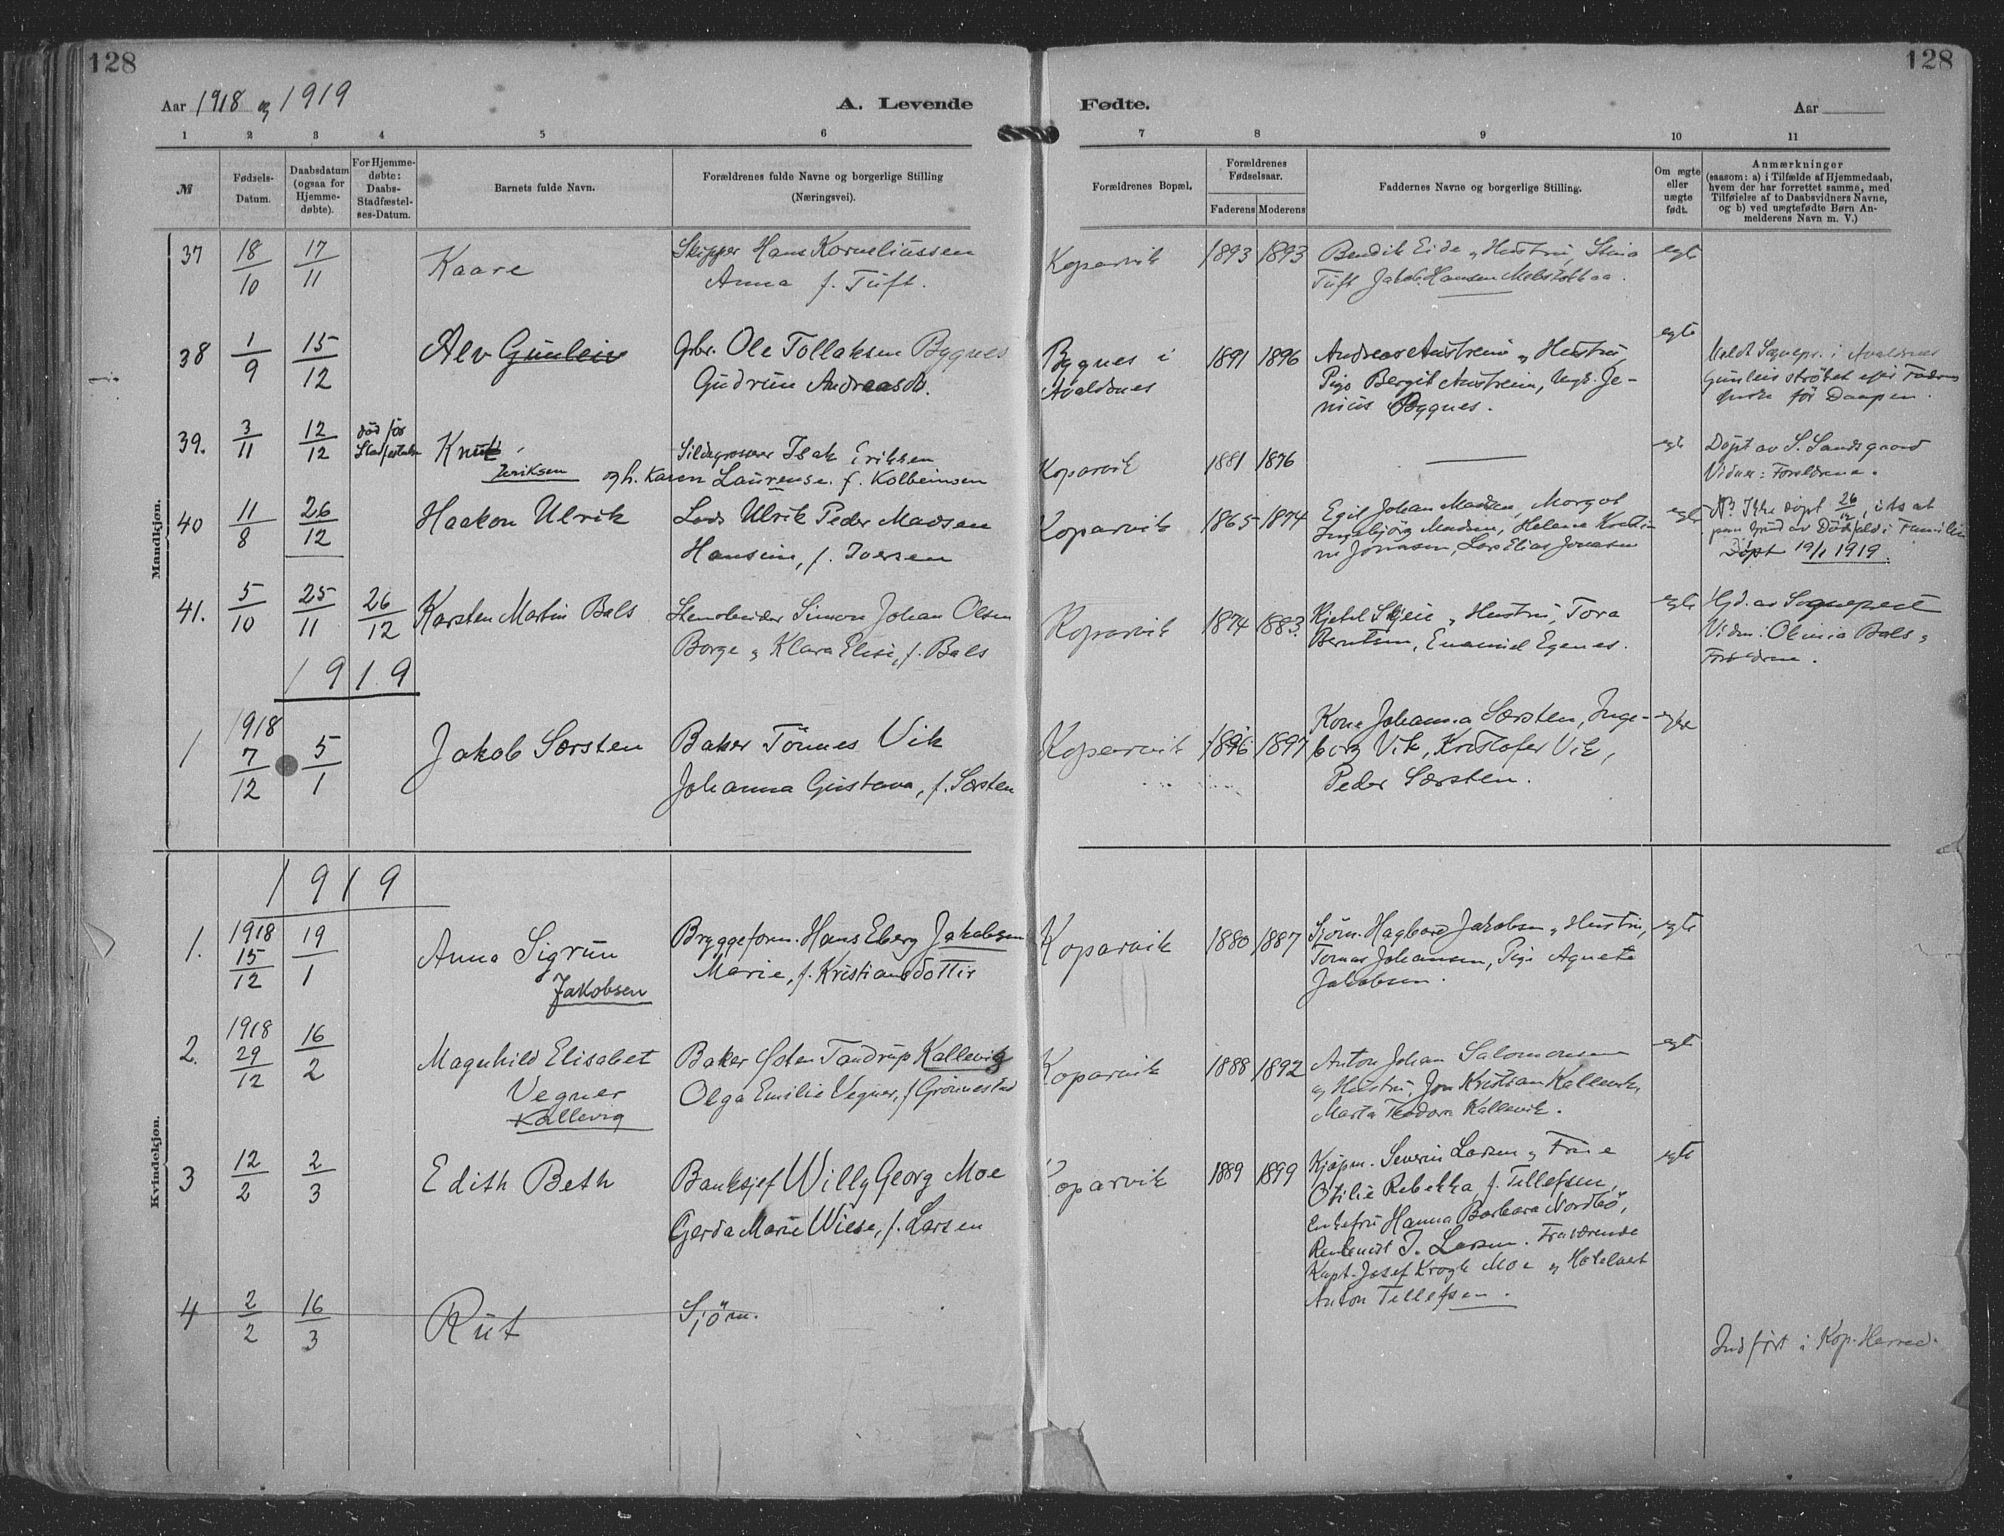 128
128
Aar 1918 og 1919
A. Levende
Fødte.
Aar
1 2 3 4 5 6 7 8 9 10 11
№
Fødsels-
Datum.
Daabsdatum
(ogsaa for
Hjemme-
døbte).
For Hjemme-
døbte:
Daabs-
Stadfæstel-
ses-Datum.
Barnets fulde Navn.
Forældrenes fulde Navne og borgerlige Stilling
(Næringsvei).
Forældrenes Bopæl.
Forældrenes
Fødselsaar.
Faderens Moderens
Faddernes Navne og borgerlige Stilling.
Om ægte
eller
uægte
født.
Anmærkninger
(saasom: a) i Tilfælde af Hjemmedaab,
hvem der har forrettet samme, med
Tilføielse af to Daabsvidners Navne,
og b) ved uægtefødte Børn An-
melderens Navn m. V.)
Mandkjøn.
37 18/10 17/11 Kaare
Skipper Hans Korneliussen
Anna f. Tuft.
Koparvik 1893 1893
Bendik Eide og Hustru, Stina
Tuft Jakob Hansen
egte
38 1/9 15/12 Alv Gunleiv
Gbr. Ole Tollaksen Bygnes
Gudrun Andreasd.
Bygnes i
Avaldsnes
1891 1896
Andreas Austreim og Hustru,
Pige Bergit Austreim, Ungk. Je-
nius Bygnes.
egte
Meldt Sognepr. i Avaldsnes
Gunleiv strøket efter Faderens
ønske før Daapen.
39. 3/11 12/12
død før
Stadfestelse
Knut
Eriksen
Sildegrosserer Isak Eriksen
og h. Karen Laurense f. Kolbeinsen
Koparvik 1881 1876
egte
Døpt av S. Sandsgaard
Vidner: Forældrene.
40 11/8 26/12 Haakon Ulrik
Lods Ulrik Peder Madsen
Hansine, f. Iversen
Koparvik 1865 1874
Egil Johan Madsen, Margot
Ingebjørg Madsen, Helene Kristi-
ne Jonassen, Lars Elias Jonassen
egte
NB Ikke døpt 26/12, men
paa Grund av Dødsfald i Familien
Døpt 19/1 1919.
41. 5/10 25/11 26/12 Karsten Martin Bals
Stenarbeider Simon Johan Olsen
Borge og Klara Elise, f. Bals
Koparvik 1874 1883.
Kjetil Skjeie og Hustru, Tora
Berntsen, Emanuel Egenes.
egte
Hjd. av Sognepresten
Vidn: Olinia Bals og
Forældrene.
1919
1 1918 7/12 5/1 Jakob Sørsten
Baker Tønnes Vik
Johanna Gustava, f. Sørsten
Koparvik 1896 1897
Kone Johanna Sørsten, Inge-
borg Vik, Kristofer Vik,
Peder Sørsten.
egte
Kvindekjøn.
1919
1. 1918 15/12 19/1 Anna Sigrun
Jakobsen
Bryggeform. Hans Eberg Jakobsen
Marie, f. Kristiansdottir
Koparvik 1880 1887
Sjøm. Hagbard Jakobsen og Hustru,
Tomas Johansen, Pige Agnete
Jakobsen.
egte
2. 1918 29/12 16/2 Magnhild Elisabet
Vegner
Kallevig
Baker Østen Tandrup Kallevig
Olga Emilie Vegner, f. Grønnestad
Koparvik 1888 1892
Anton Johan Salomonsen
og Hustru, Jon Kristian Kallevik,
Marta Teodora Kallevik.
egte
3 12/2 2/3 Edith Beth
Banksjef Willy Georg Moe
Gerda Marie Wiese, f. Larsen
Koparvik 1889 1899
Kjøpm. Severin Larsen og Frue
Otilie Rebekka, f. Tillefsen,
Enkefru Hanna Barbara Nordbø,
J. Larsen. Fraværende
Kapt. Josef Krogh Moe og
Anton Tillefsen.
egte
4 2/2 16/3 Rut
Sjøm.
Indført i Kop. Herred.